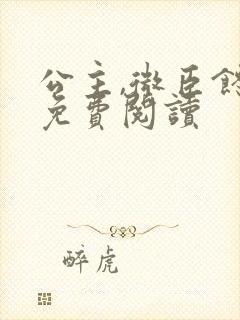 公主,微臣
免費閱讀
醉虎